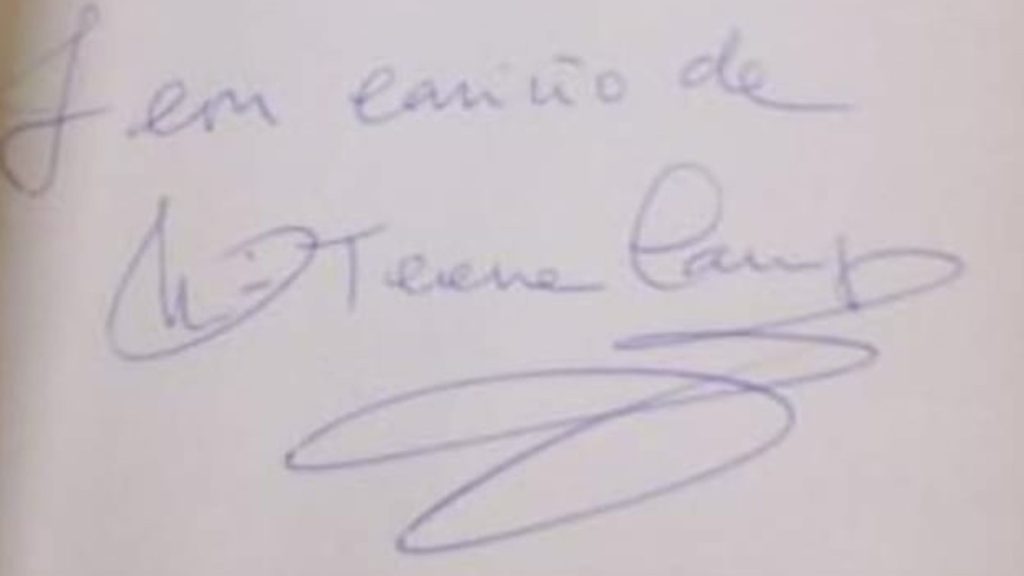 y con cariño de
Mª Teresa Camp